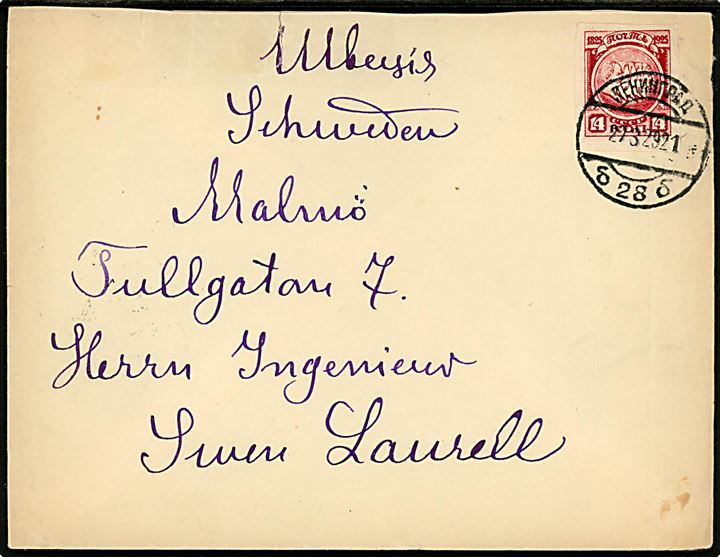 Швеція
Schweden
Malmö
Tullgatan 7.
Herrn Ingenieur
Swen Laurell
1825 ПОЧТА 1925
14 СССР 14
ЛЕНИНГРАД
2732921
б 28 б